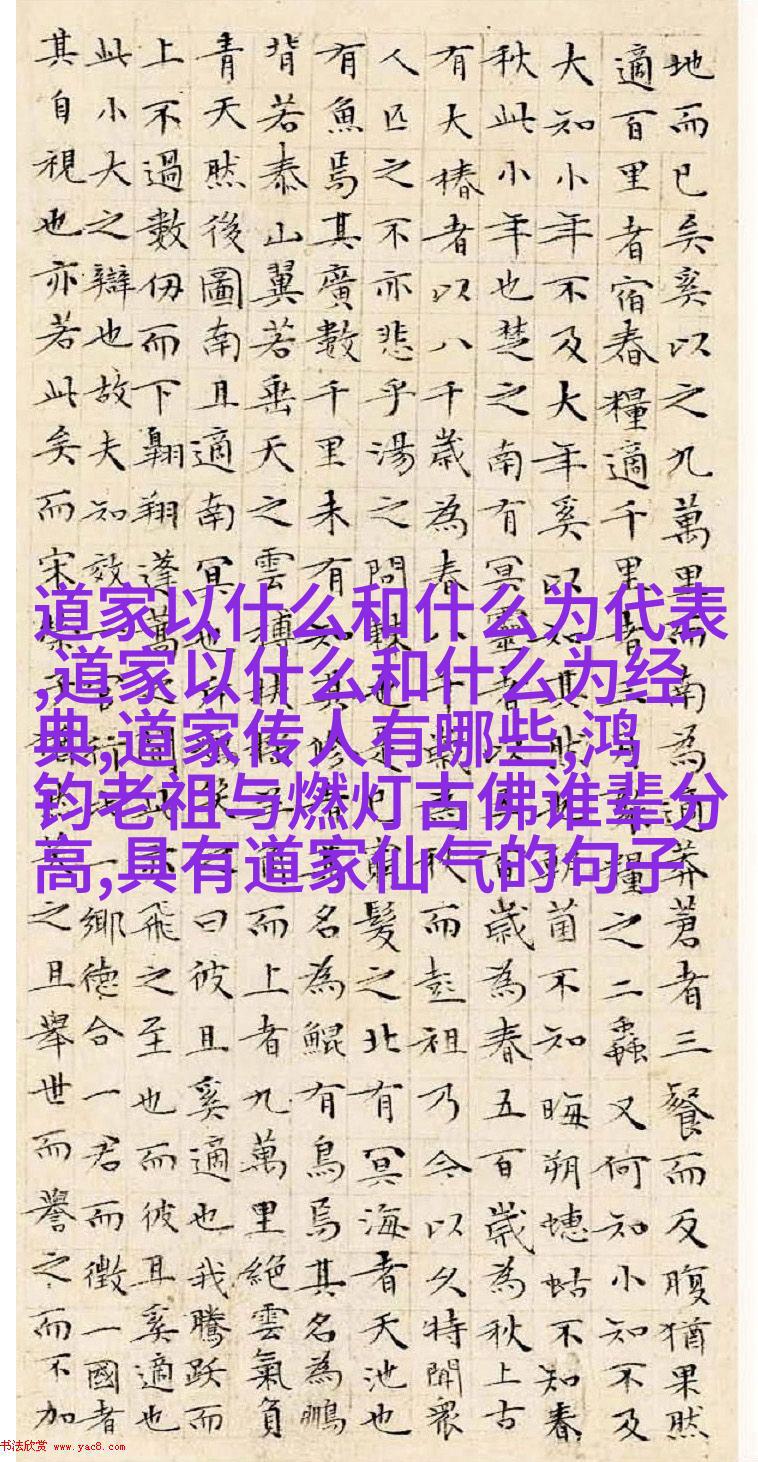 道家以什么和什么为代表
,道家以什么和什么为经
典,道家传人有哪些,鸿
钧老祖与燃灯古佛谁辈分
高,具有道家仙气的句子
地而已矣奚以之九萬里而南為適莽蒼者三餐而反腹猶果然
適百里者宿舂糧適千里者糧之二蟲又何知小知不及
大知小年不及大年奚以知其朝菌不知晦朔蟪蛄不知春
秋此小年也楚之南有冥靈者以百歲為春五百歲為秋上古
有大椿者以八千歲為春八千歲為秋而彭祖乃今以久特聞衆
人匹之不亦悲乎湯之問也是已髮之北有冥海者天池也
有魚焉其廣數千里未有知其修名為鯤有鳥焉其名為鵬
背若泰山翼若垂天之雲摶扶羊而上者九萬里絕雲氣負
青天然後圖南且適南冥也曰彼且奚適也我騰躍而
上不過數仞而下翱翔蓬蒿間飛之至也而彼且奚適也
此小大之辯也故夫知效一官行一鄉德合一君而徵一國者
其自視也亦若此矣而宋之且舉世而譽之而不加
书法欣赏 www.yac8.com